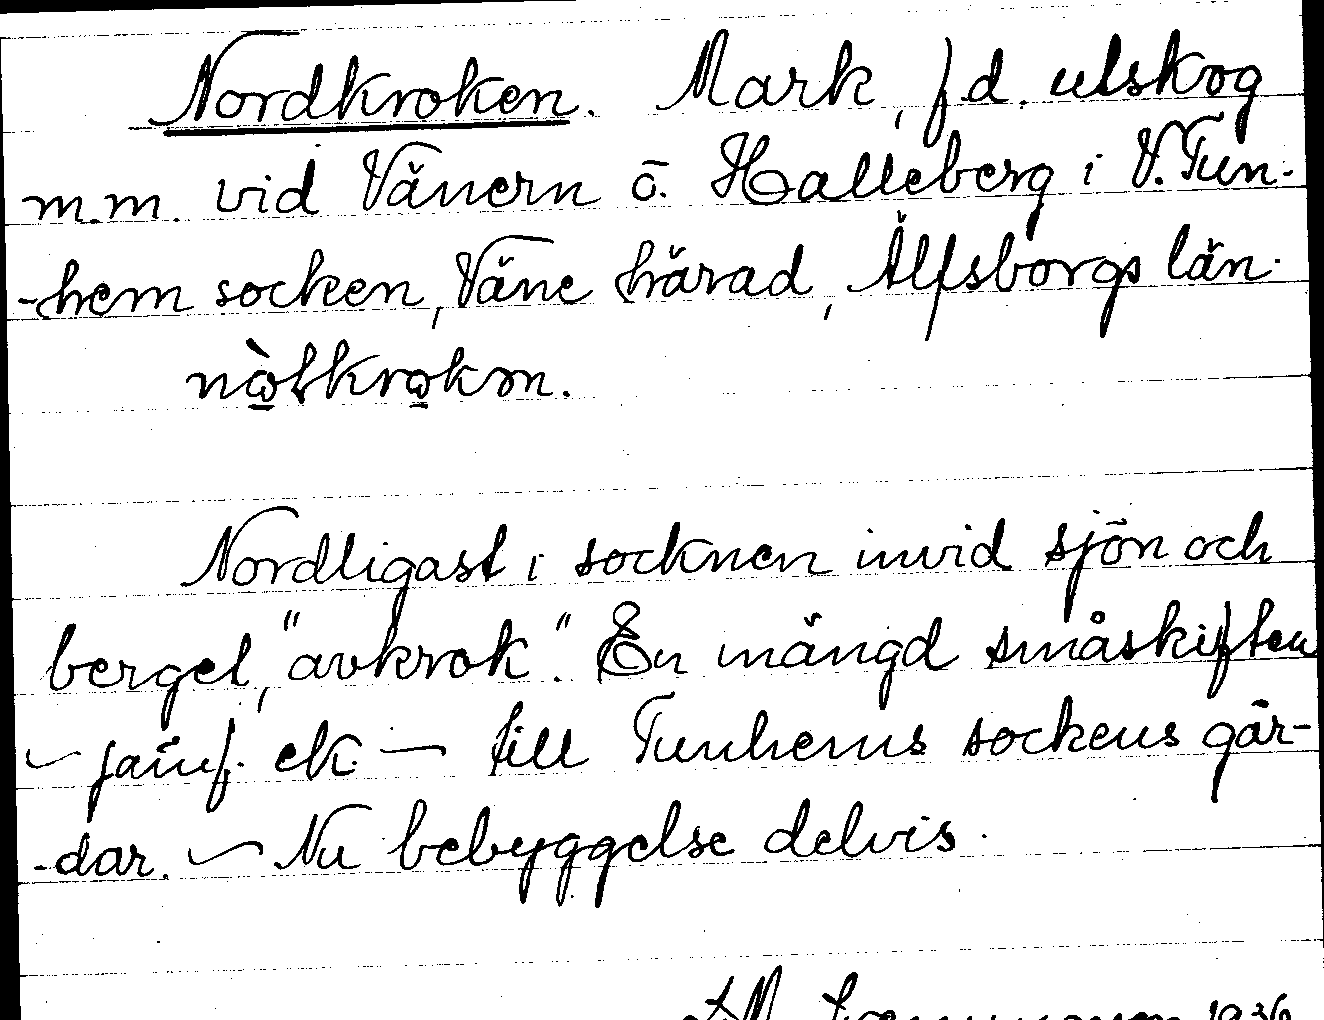 Nordkroken. Mark, f.d. utskog
m.m. vid Vänern ö. Halleberg i V. Tun-
-hem socken, Väne härad, Älfsborgs län.
nò̱tkro̱kən.
Nordligast i socknen invid sjön och
berget, "avkrok". En mängd småskiften
— jämf. ek. — till Tunhems sockens går-
-dar. — Nu bebyggelse delvis.
1936